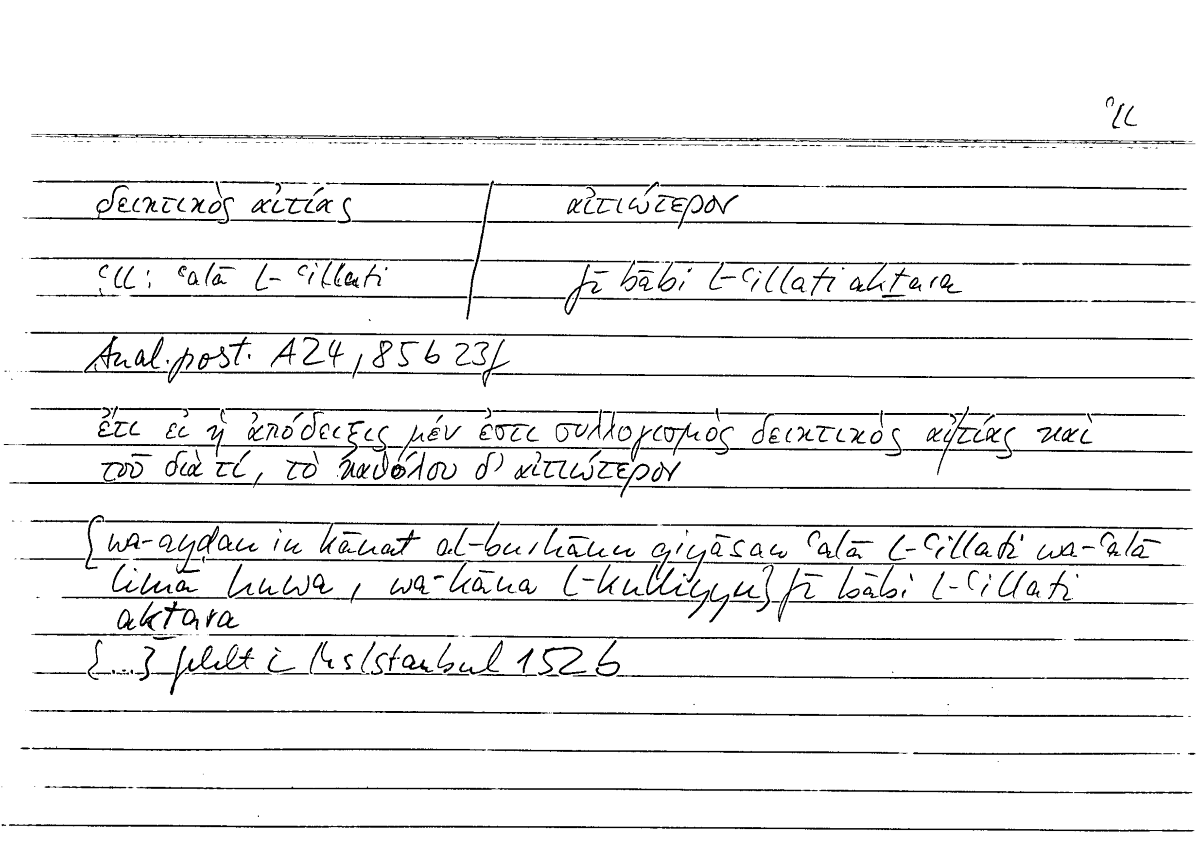 ʿll
δεικτικὸς αἰτίας / αἰτιώτερον
ʿll: ʿalā l-ʿillati / fī bābi l-ʿillati akṯara
Anal. post. A24, 85b 23f
ἔτι εἰ ἡ ἀπόδειξις μέν ἐστι συλλογισμὸς δεικτικὸς αἰτίας καὶ
τοῦ διὰ τί, τὸ καθόλου δ' αἰτιώτερον
{wa-ayḍan in kānat al-burhānu qiyāsan ʿalā l-ʿillati wa-ʿalā
limā huwa, wa-kāna l-kulliyyu} fī bābi l-ʿillati
akṯara
{...} fehlt i Hs Istanbul 152b